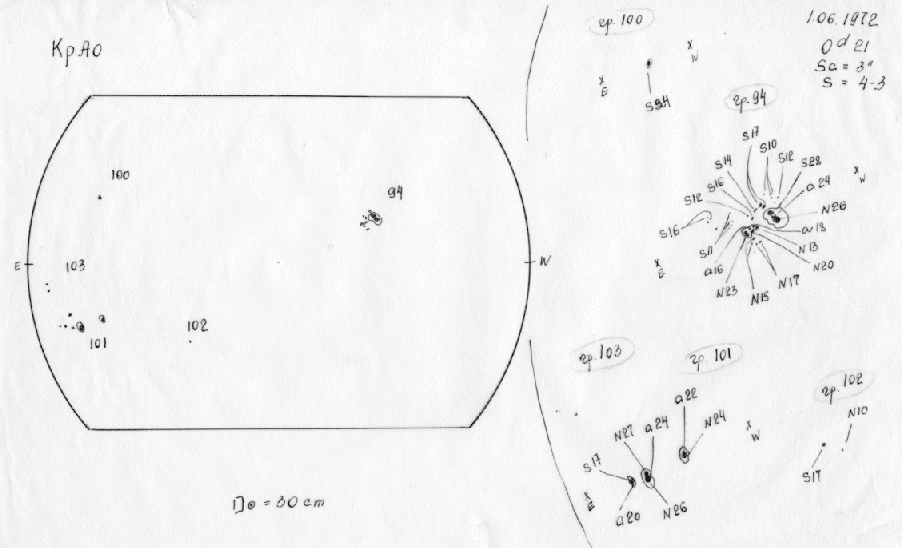 КрАО
100
94
E
103
W
102
101
D⊙ = 30 cm
1.06.1972
0d 21
Sa = 3"
S = 4-3
гр. 100
W
E
S24
гр. 94
S17
S10
S14
S12
S28
S16
a24
W
S12
N26
S16
a13
S11
N13
a16
N20
E
N17
N23
N15
гр. 103
гр. 101
гр. 102
a22
N10
N27
a24
N24
W
S17
S17
E
a20
N26